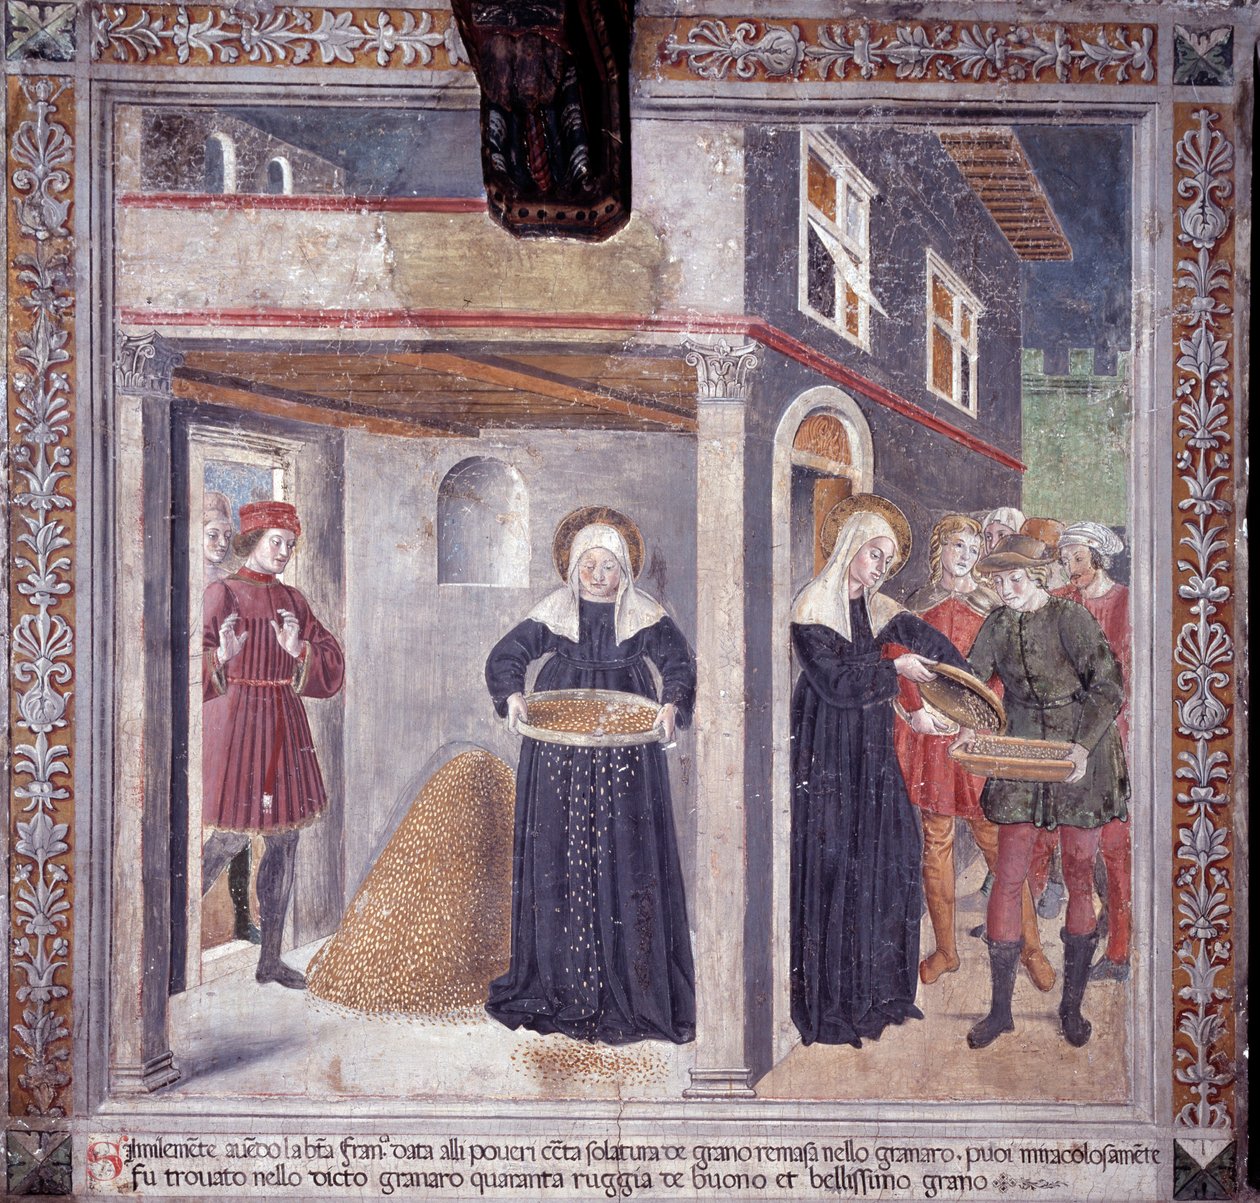 Similemēte avēdo la bt̄a Franᵃ. data alli poveri cēta solatura de grano remasa nello granaro. puoi miracolosamēte
fu trovato nello dicto granaro quaranta ruggia de buono et bellissimo grano